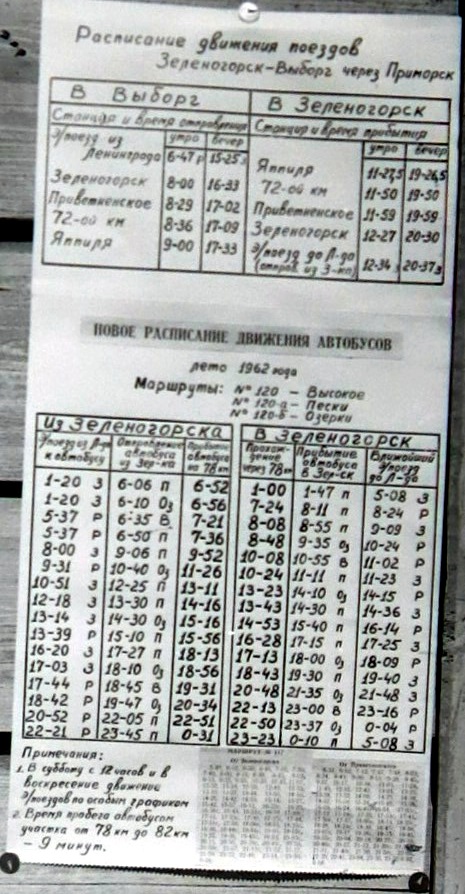 Расписание движения поездов
Зеленогорск-Выборг через Приморск
В Выборг
Станция и время отправления
утро вечер
Э/поезд из
Ленинграда 6-47 Р 15-25 З
Зеленогорск 8-00 16-33
Приветненское 8-29 17-02
72-ой км 8-36 17-09
Яппиля 9-00 17-33
В Зеленогорск
Станция и время прибытия
утро вечер
Яппиля 11-27,5 19-26,5
72-ой км 11-50 19-50
Приветненское 11-59 19-59
Зеленогорск 12-27 20-30
Э/поезд до Л-да
(отправ. из З-ка) 12-34 З 20-37 З
НОВОЕ РАСПИСАНИЕ ДВИЖЕНИЯ АВТОБУСОВ
лето 1962 года
Маршруты: № 120 – Высокое
№ 120-а – Пески
№ 120-б – Озерки
Из Зеленогорска
Э/поезд из Л-да Отправление Прибытие
к автобусу автобуса автобуса
из Зер-ка на 78 км
1-20 З 6-06 П 6-52
1-20 З 6-10 Оз 6-56
5-37 Р 6-35 В 7-21
5-37 Р 6-50 П 7-36
8-00 З 9-06 П 9-52
9-31 Р 10-40 Оз 11-26
10-51 З 12-25 П 13-11
12-18 З 13-30 П 14-16
13-14 З 14-30 Оз 15-16
13-39 Р 15-10 П 15-56
16-20 З 17-27 П 18-13
17-03 З 18-10 Оз 18-56
17-44 Р 18-45 В 19-31
18-42 Р 19-47 Оз 20-34
20-52 Р 22-05 П 22-51
22-21 Р 23-45 П 0-31
В Зеленогорск
Прохож- Прибытие Ближайший
дение автобуса э/поезд
через 78 км в Зер-ск до Л-да
1-00 1-47 П 5-08 З
7-24 8-11 П 8-24 Р
8-08 8-55 П 9-09 З
8-48 9-35 Оз 10-24 Р
10-08 10-55 В 11-02 Р
10-24 11-11 П 11-23 З
13-23 14-10 Оз 14-15 Р
13-43 14-30 П 14-36 З
14-53 15-40 П 16-14 Р
16-28 17-15 П 17-25 З
17-13 18-00 Оз 18-09 Р
18-43 19-30 П 19-40 З
20-48 21-35 Оз 21-48 З
22-13 23-00 В 23-16 Р
22-50 23-37 Оз 0-04 Р
23-23 0-10 П 5-08 З
Примечания:
1. В субботу с 12 часов и в
воскресение движение
э/поездов по особым графиком
2. Время пробега автобусом
участка от 78 км до 82 км
– 9 минут.